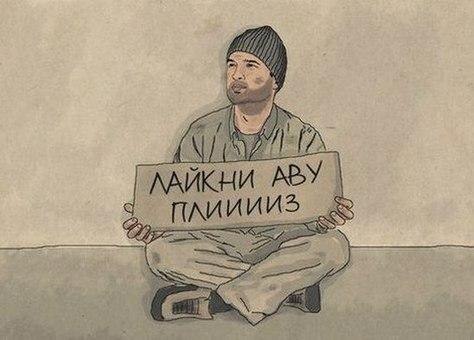 ЛАЙКНИ АВУ
ПЛИИИИЗ